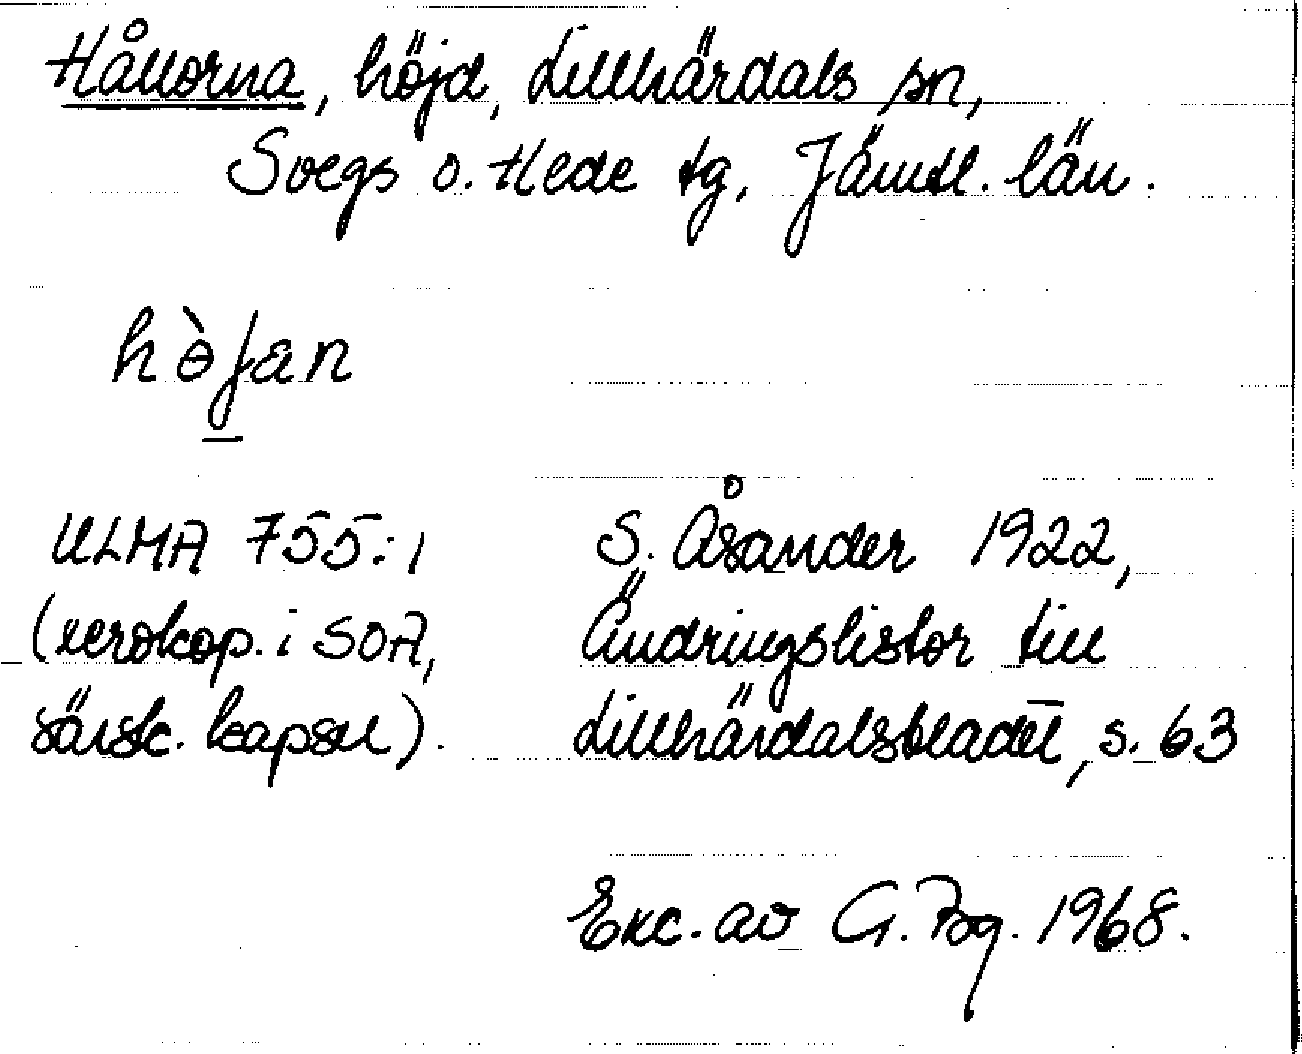 Hållorna, höjd, Lillhärdals sn,
Svegs o. Hede tg, Jämtl. län.
hòʃan
ULMA 755:1
(xerokop. i SOA,
särsk. kapsel).
S. Åsander 1922,
Ändringslistor till
Lillhärdalsbladet, s. 63
Exc. av G. 1968.